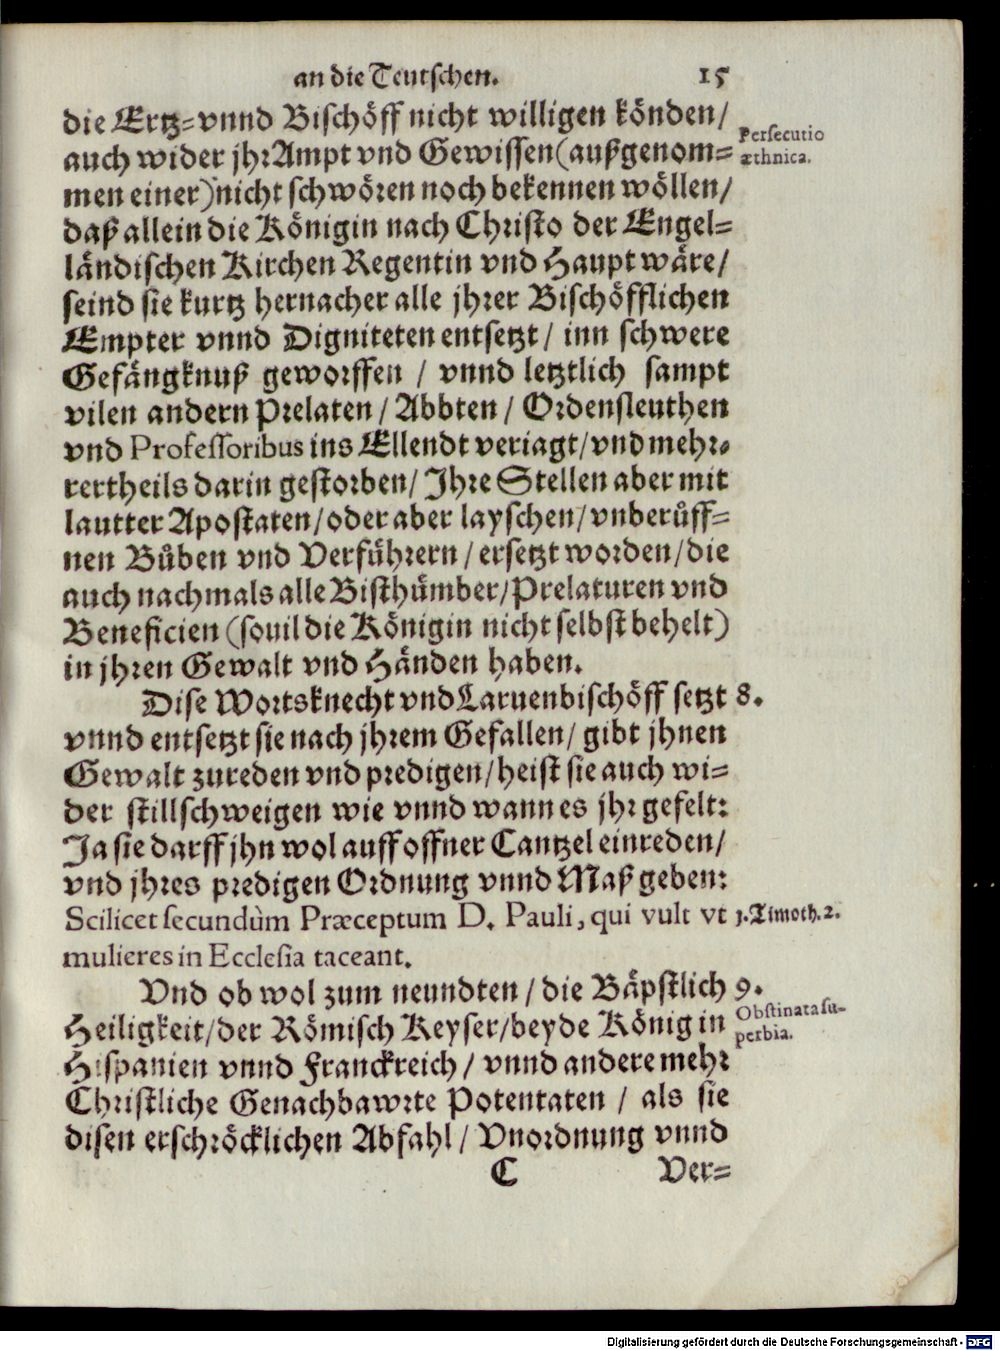 an die Teutschen. 15
die Ertz=vnnd Bischöff nicht willigen könden/
auch wider jhr Ampt vnd Gewissen (außgenom=
men einer) nicht schwören noch bekennen wöllen/
daß allein die Königin nach Christo der Engel=
ländischen Kirchen Regentin vnd Haupt wäre/
seind sie kurtz hernacher alle jhrer Bischöfflichen
Empter vnnd Digniteten entsetzt/ inn schwere
Gefängknuß geworffen / vnnd letztlich sampt
vilen andern Prelaten/ Abbten/ Ordensleuthen
vnd Professoribus ins Ellendt veriagt/ vnd mehr=
rertheils darin gestorben/ Ihre Stellen aber mit
lautter Apostaten/ oder aber layschen/ vnberůff=
nen Bůben vnd Verführern/ ersetzt worden/ die
auch nachmals alle Bisthümber/ Prelaturen vnd
Beneficien (souil die Königin nicht selbst behelt)
in jhren Gewalt vnd Händen haben.
Persecutio
æthnica.
Dise Wortsknecht vnd Laruenbischöff setzt 8.
vnnd entsetzt sie nach jhrem Gefallen/ gibt jhnen
Gewalt zureden vnd predigen/ heist sie auch wi=
der stillschweigen wie vnnd wann es jhr gefelt:
Ja sie darff jhn wol auff offner Cantzel einreden/
vnd jhres predigen Ordnung vnnd Maß geben:
Scilicet secundùm Præceptum D. Pauli, qui vult vt 1. Timoth. 2.
mulieres in Ecclesia taceant.
Vnd ob wol zum neundten/ die Bäpstlich 9.
Heiligkeit/ der Römisch Keyser/ beyde König in
Hispanien vnnd Franckreich/ vnnd andere mehr
Christliche Genachbawrte Potentaten / als sie
disen erschröcklichen Abfahl/ Vnordnung vnnd
Obstinata su-
perbia.
C Ver=
Digitalisierung gefördert durch die Deutsche Forschungsgemeinschaft - DFG